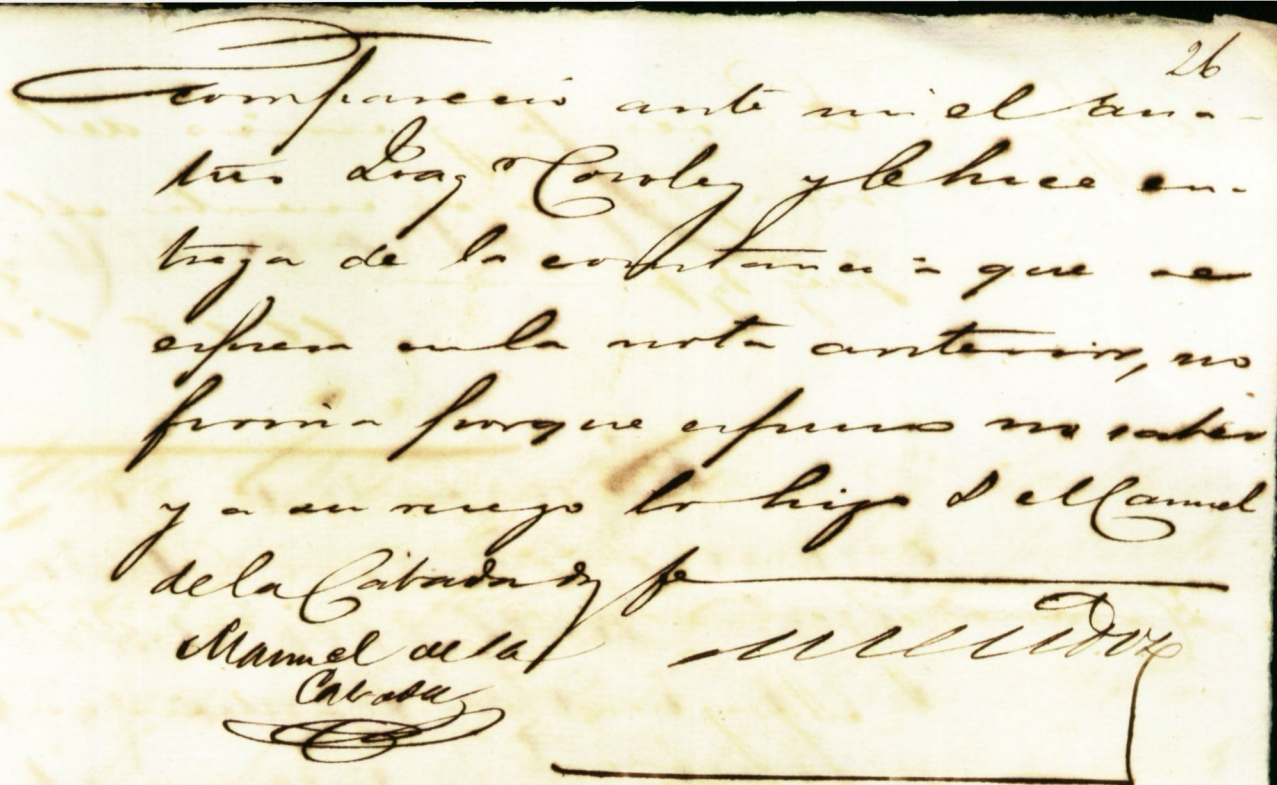 26
compareció ante mi el sas-
tre Y le hice en-
trega de la constancia que se
espresa en la nota anterior, no
firma porque espreso no saber
y a su ruego lo hizo D Manuel
de la Cabada doy fe
Manuel de la
Cabada
Mendoza